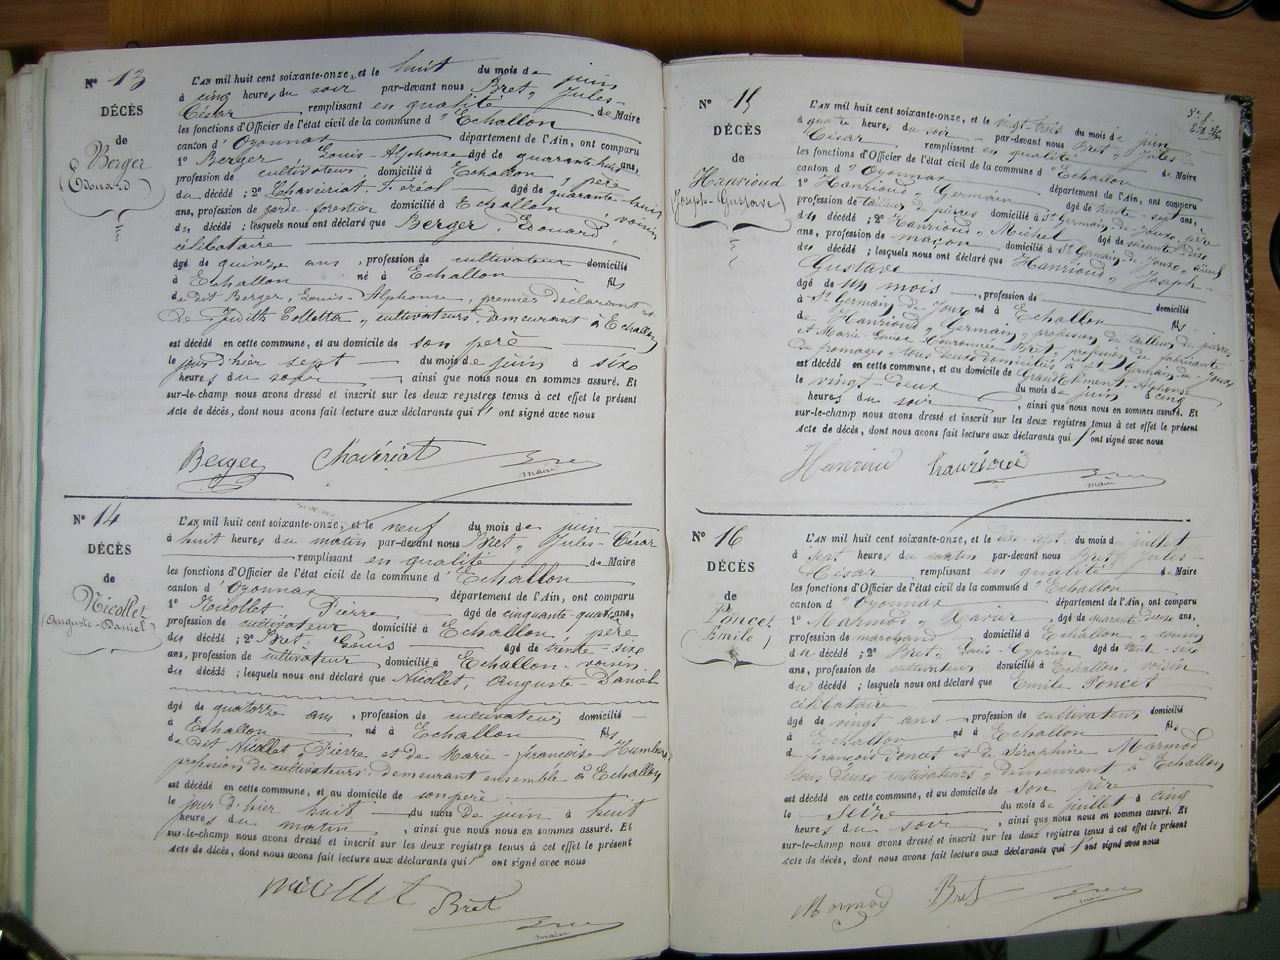 N° 13
DÉCÈS
de
Berger
(Edouard)
L'AN mil huit cent soixante-onze, et le huit du mois de juin
à cinq heures du soir par-devant nous Bret, Jules-
César remplissant en qualité de Maire
les fonctions d'Officier de l'état civil de la commune d'Echallon
canton d'Oyonnax département de l'Ain, ont comparu
1° Berger Louis-Alphonse âgé de quarante-huit ans,
profession de cultivateur, domicilié à Echallon, père
du décédé ; 2° Chavériat, Féréol âgé de quarante-huit
ans, profession de garde-forestier domicilié à Echallon, voisin
du décédé ; lesquels nous ont déclaré que Berger, Edouard,
célibataire
âgé de quinze ans, profession de cultivateur domicilié
à Echallon né à Echallon fils
de dit Berger, Louis-Alphonse, premier déclarant et
de Judith Collette, cultivateurs, demeurant à Echallon
est décédé en cette commune, et au domicile de son père
le jour d'hier sept du mois de juin à six
heures du soir, ainsi que nous nous en sommes assuré. Et
sur-le-champ nous avons dressé et inscrit sur les deux registres tenus à cet effet le présent
Acte de décès, dont nous avons fait lecture aux déclarants qui l'ont signé avec nous
Berger Chavériat
maire
N° 14
DÉCÈS
de
Nicollet
(Auguste-Daniel)
L'AN mil huit cent soixante-onze, et le neuf du mois de juin
à huit heures du matin par-devant nous Bret, Jules-César
remplissant en qualité de Maire
les fonctions d'Officier de l'état civil de la commune d'Echallon
canton d'Oyonnax département de l'Ain, ont comparu
1° Nicollet Pierre âgé de cinquante-quatre ans,
profession de cultivateur domicilié à Echallon, père
du décédé ; 2° Bret Louis âgé de trente-six
ans, profession de cultivateur domicilié à Echallon, voisin
du décédé ; lesquels nous ont déclaré que Nicollet, Auguste-Daniel
âgé de quatorze ans, profession de cultivateur domicilié
à Echallon né à Echallon fils
de dit Nicollet, Pierre et de Marie-françoise Humbert
profession de cultivateurs, demeurant ensemble à Echallon
est décédé en cette commune, et au domicile de son père
le jour d'hier huit du mois de juin à huit
heures du matin, ainsi que nous nous en sommes assuré. Et
sur-le-champ nous avons dressé et inscrit sur les deux registres tenus à cet effet le présent
Acte de décès, dont nous avons fait lecture aux déclarants qui ont signé avec nous
Nicollet Bret
maire
N° 15
DÉCÈS
de
Hanrioud
(Joseph-Gustave)
L'AN mil huit cent soixante-onze, et le vingt-trois du mois de juin
à quatre heures du soir par-devant nous Bret, Jules-
César remplissant en qualité de Maire
les fonctions d'Officier de l'état civil de la commune d'Echallon
canton d'Oyonnax département de l'Ain, ont comparu
1° Hanrioud, Germain âgé de trente-sept ans,
profession de tailleur de pierres domicilié à St Germain de Joux, père
du décédé ; 2° Hanrioud, Michel âgé de soixante-dix
ans, profession de maçon domicilié à St Germain-de-Joux, aïeul
du décédé ; lesquels nous ont déclaré que Hanrioud, Joseph-
Gustave
âgé de 14 mois, profession de domicilié
à St Germain de Joux né à Echallon fils
de Hanrioud, Germain, profession de tailleur de pierres
et Marie-Louise Bret, profession de fabricante
de fromages, tous deux domiciliés à St Germain de Joux
est décédé en cette commune, et au domicile de Grand Clément, Alphonse
le vingt-deux du mois de juin à cinq
heures du soir, ainsi que nous nous en sommes assuré. Et
sur-le-champ nous avons dressé et inscrit sur les deux registres tenus à cet effet le présent
Acte de décès, dont nous avons fait lecture aux déclarants qui l'ont signé avec nous
Hanrioud hanrioud
maire
N° 16
DÉCÈS
de
Poncet
(Emile)
L'AN mil huit cent soixante-onze, et le dix-sept du mois de juillet
à sept heures du matin par-devant nous Bret, Jules-
César remplissant en qualité de Maire
les fonctions d'Officier de l'état civil de la commune d'Echallon
canton d'Oyonnax département de l'Ain, ont comparu
1° Marmod, Xavier âgé de quarante deux ans,
profession de marchand domicilié à Echallon, cousin
du décédé ; 2° Bret, Louis âgé de trente-six
ans, profession de cultivateur domicilié à Echallon, voisin
du décédé ; lesquels nous ont déclaré que Emile Poncet
célibataire
âgé de vingt ans, profession de cultivateur domicilié
à Echallon né à Echallon fils
de françois Poncet et de Séraphine Marmod
tous deux cultivateurs, demeurant à Echallon
est décédé en cette commune, et au domicile de son père
le seize du mois de juillet à cinq
heures du soir, ainsi que nous nous en sommes assuré. Et
sur-le-champ nous avons dressé et inscrit sur les deux registres tenus à cet effet le présent
Acte de décès, dont nous avons fait lecture aux déclarants qui ont signé avec nous
Marmod Bret
maire